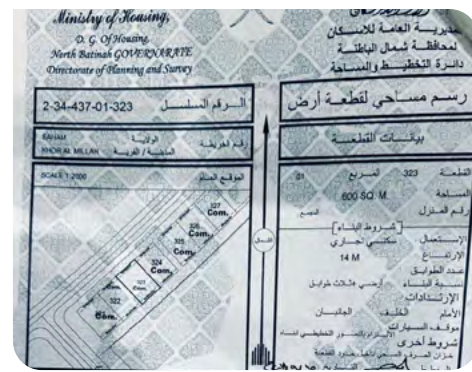 Ministry of Housing,
D. G. Of Housing.
North Batinah GOVERNARATE
Directorate of Planning and Survey
مديرية العامة للاسكان
لمحافظة شمال الباطنة
دائرة التخطيط والمساحة
2-34-437-01-323 الرقم المسلسل
رسم مساحي لقطعة أرض
SAHAM الولاية
KHOR AL MILLAH / القرية
رقم الخريطة
بيانات القطعة
SCALE 1:2000 الموقع العام
327
Com.
326
Com.
325
Com.
324
Com.
323
Com.
322
Com.
الشمال
القطعة 323 المربع 01
المساحة 600 SQ. M.
رقم المنزل
[شروط البناء]
الإستعمال سكني تجاري
الإرتفاع 14 M
عدد الطوابق
نسبة البناء أرضي + ثلاث طوابق
الإرتدادات
الأمام الخلف الجانبان
موقف السيارات
شروط أخرى